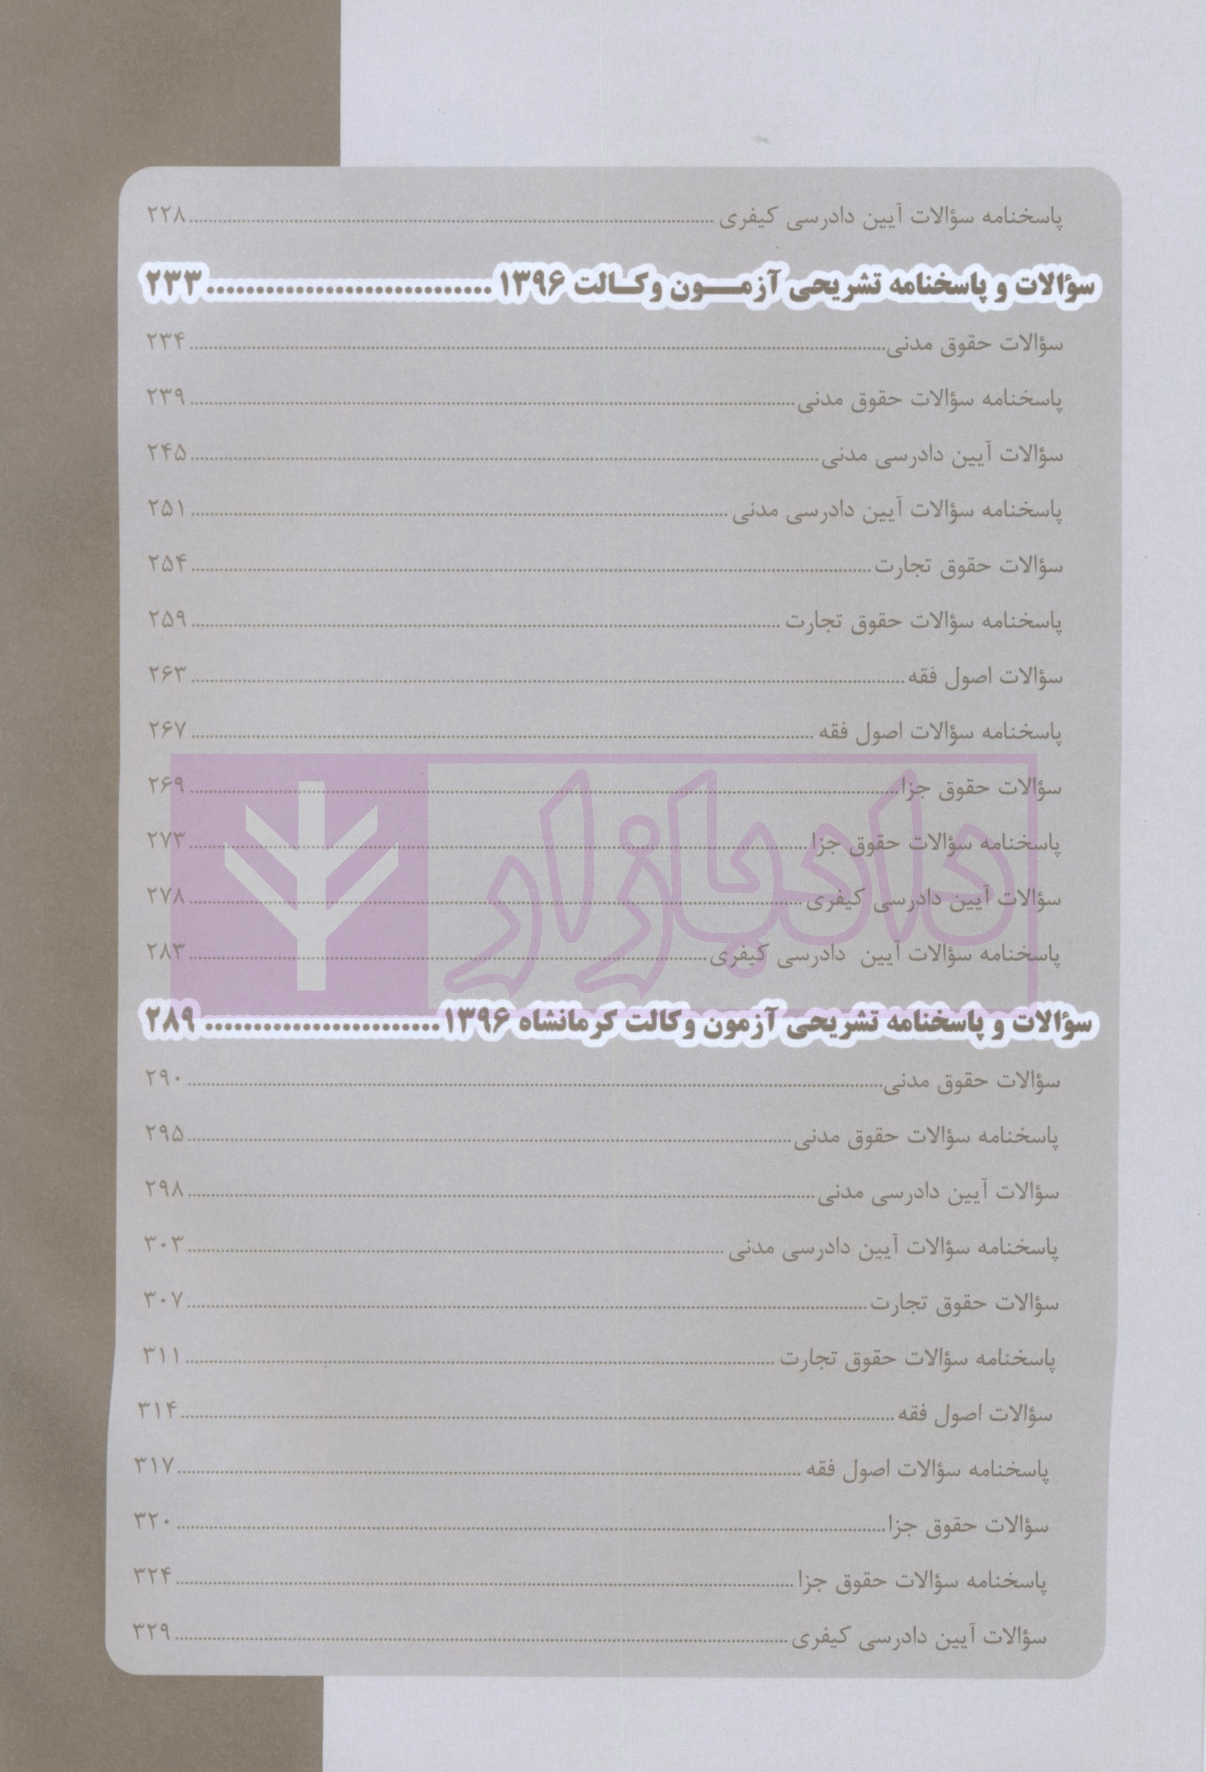 پاسخنامه سؤالات آیین دادرسی کیفری ........ ۲۲۸
سؤالات و پاسخنامه تشریحی آزمـــون وکـالت ۱۳۹۶ ........ ۲۳۳
سؤالات حقوق مدنی ........ ۲۳۴
پاسخنامه سؤالات حقوق مدنی ........ ۲۳۹
سؤالات آیین دادرسی مدنی ........ ۲۴۵
پاسخنامه سؤالات آیین دادرسی مدنی ........ ۲۵۱
سؤالات حقوق تجارت ........ ۲۵۴
پاسخنامه سؤالات حقوق تجارت ........ ۲۵۹
سؤالات اصول فقه ........ ۲۶۳
پاسخنامه سؤالات اصول فقه ........ ۲۶۷
سؤالات حقوق جزا ........ ۲۶۹
دادبازار
پاسخنامه سؤالات حقوق جزا ........ ۲۷۳
سؤالات آیین دادرسی کیفری ........ ۲۷۸
پاسخنامه سؤالات آیین دادرسی کیفری ........ ۲۸۳
سؤالات و پاسخنامه تشریحی آزمون وکالت کرمانشاه ۱۳۹۶ ........ ۲۸۹
سؤالات حقوق مدنی ........ ۲۹۰
پاسخنامه سؤالات حقوق مدنی ........ ۲۹۵
سؤالات آیین دادرسی مدنی ........ ۲۹۸
پاسخنامه سؤالات آیین دادرسی مدنی ........ ۳۰۳
سؤالات حقوق تجارت ........ ۳۰۷
پاسخنامه سؤالات حقوق تجارت ........ ۳۱۱
سؤالات اصول فقه ........ ۳۱۴
پاسخنامه سؤالات اصول فقه ........ ۳۱۷
سؤالات حقوق جزا ........ ۳۲۰
پاسخنامه سؤالات حقوق جزا ........ ۳۲۴
سؤالات آیین دادرسی کیفری ........ ۳۲۹